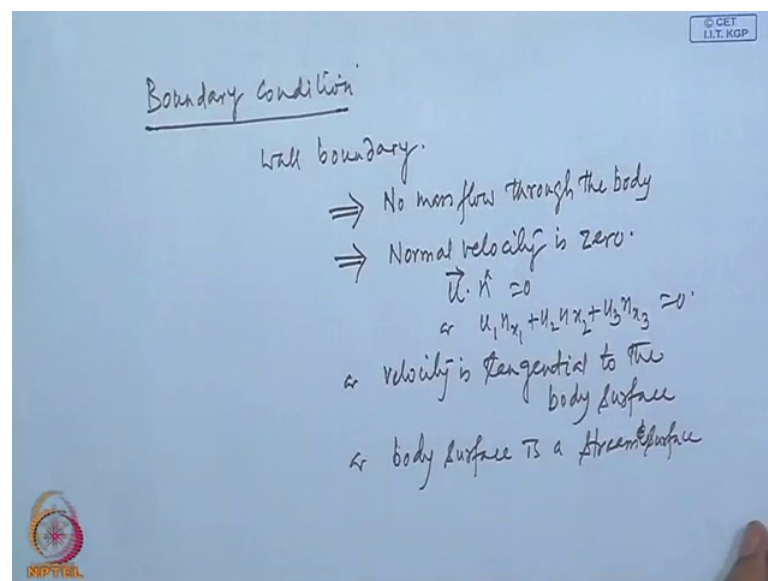 © CET
I.I.T. KGP
Boundary Condition
Wall boundary.
⇒ No mass flow through the body
⇒ Normal velocity is zero.
u⃗ · n̂ = 0
or u₁nₓ₁ + u₂nₓ₂ + u₃nₓ₃ = 0.
or velocity is tangential to the
body surface
or body surface is a stream surface
NPTEL